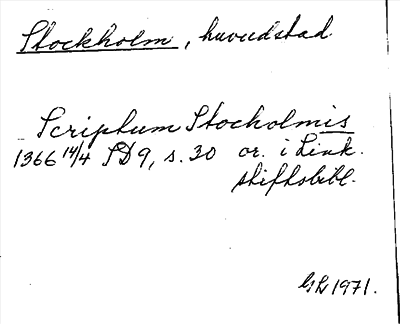 Stockholm, huvudstad
Scriptum Stocholmis
1366 14/4 SD 9, s. 30 or. i Link.
stiftsbibl.
GL 1971.